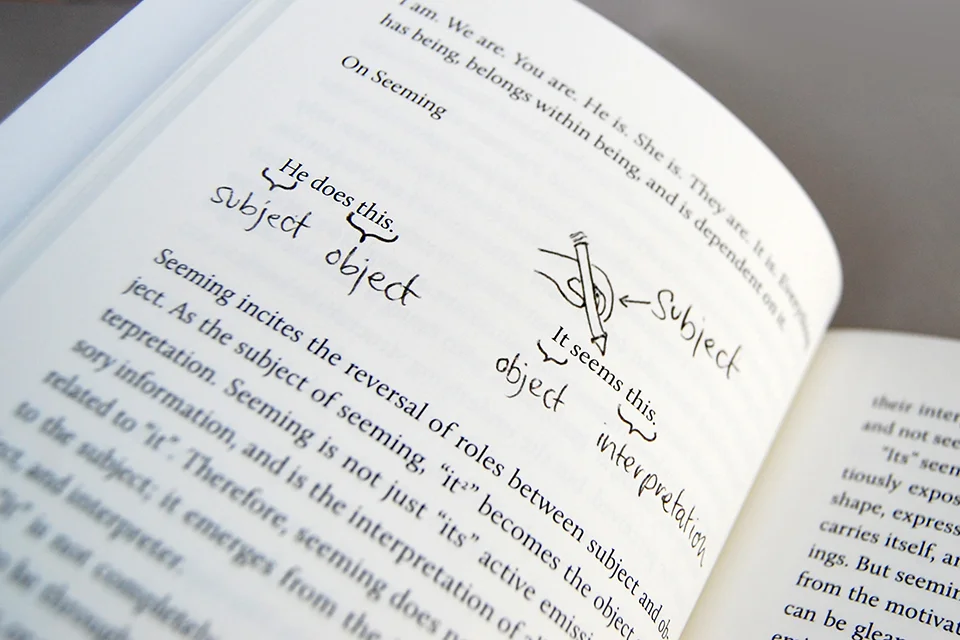 I am. We are. You are. He is. She is. They are. It is. Everything
has being, belongs within being, and is dependent on it.
On Seeming
He does this.
subject
object
Subject
It seems this.
object
interpretation
Seeming incites the reversal of roles between subject and ob-
ject. As the subject of seeming, “it²” becomes the object
terpretation. Seeming is not just “its” active emissi
sory information, and is the interpretation of
related to “it”. Therefore, seeming does
to the subject; it emerges from the
and interpreter.
is not completel
be through
their inter
and not see
“Its” seem
tiously expos
shape, express
carries itself, an
ings. But seemin
from the motivat
can be glean